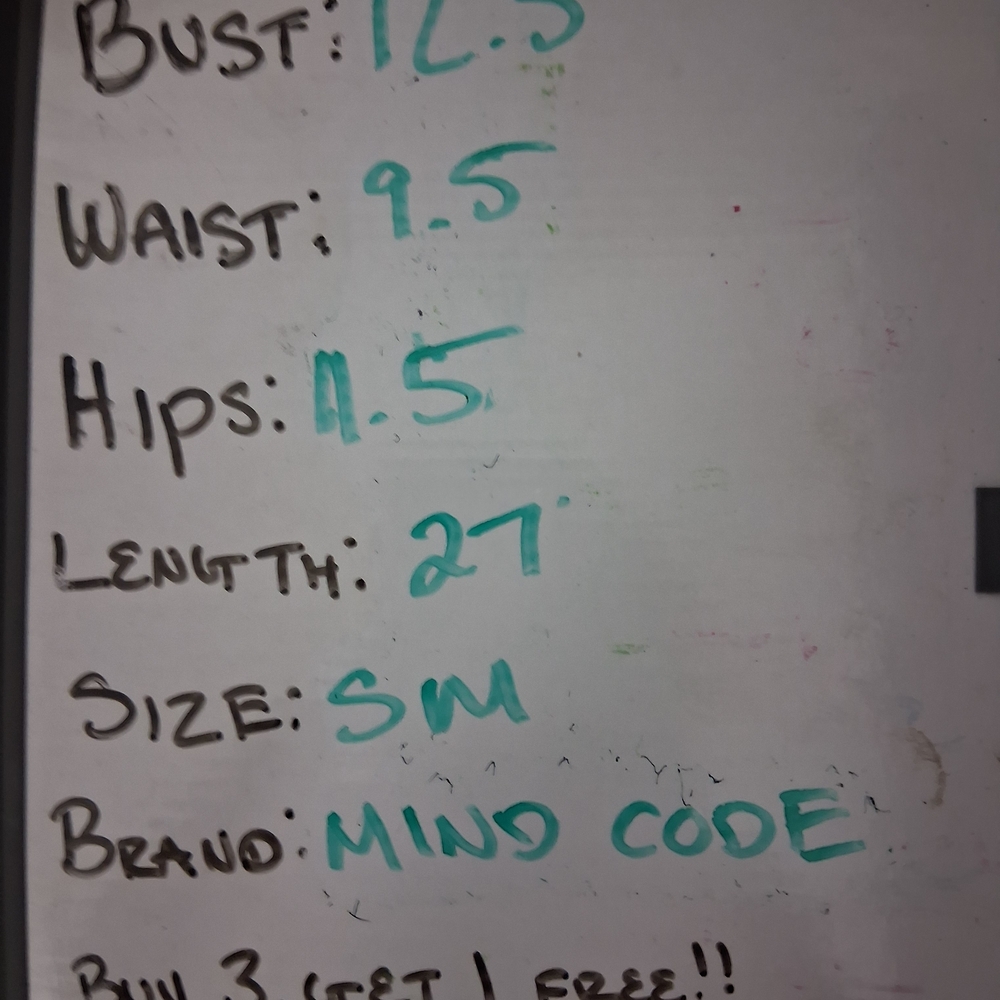 BUST: 12.5
WAIST: 9.5
HIPS: 11.5
LENGTH: 27
SIZE: SM
BRAND: MIND CODE
BUY 3 GET 1 FREE!!